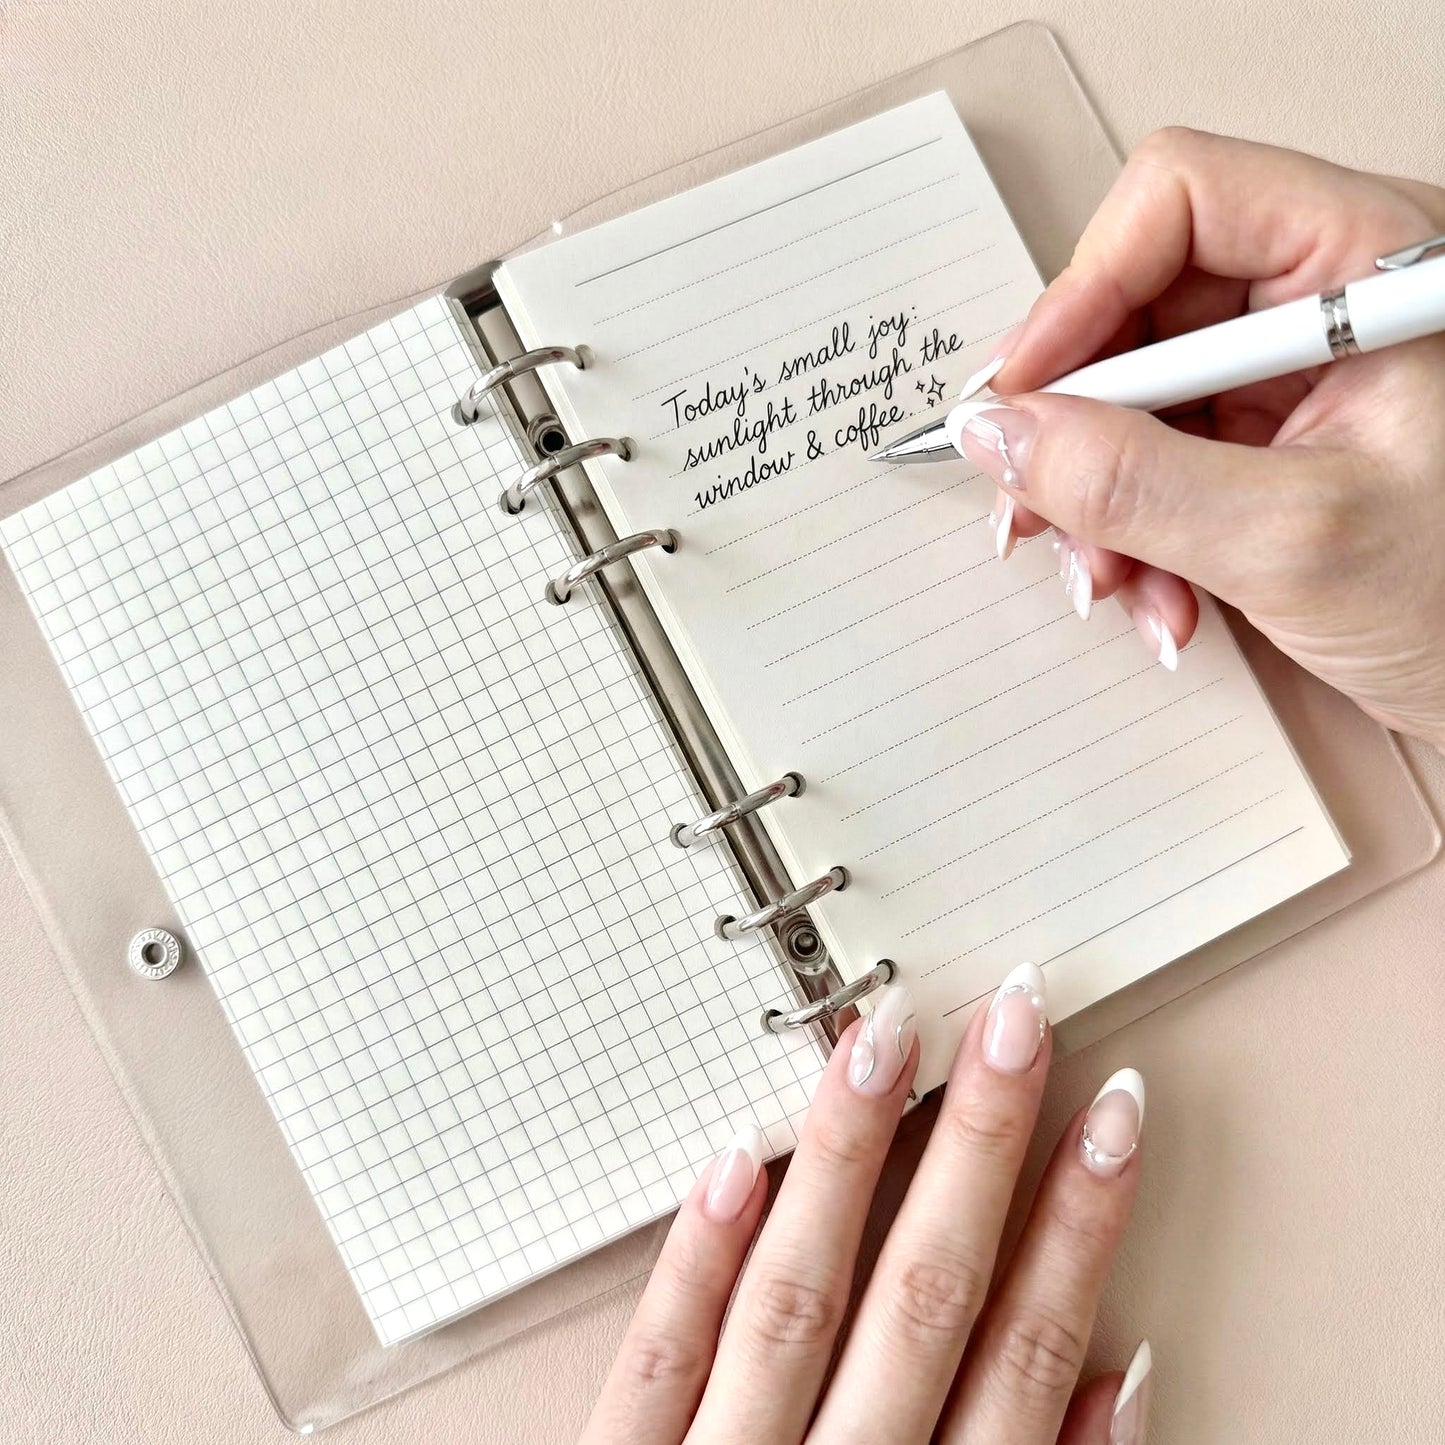 Today's small joy:
sunlight through the
window & coffee.